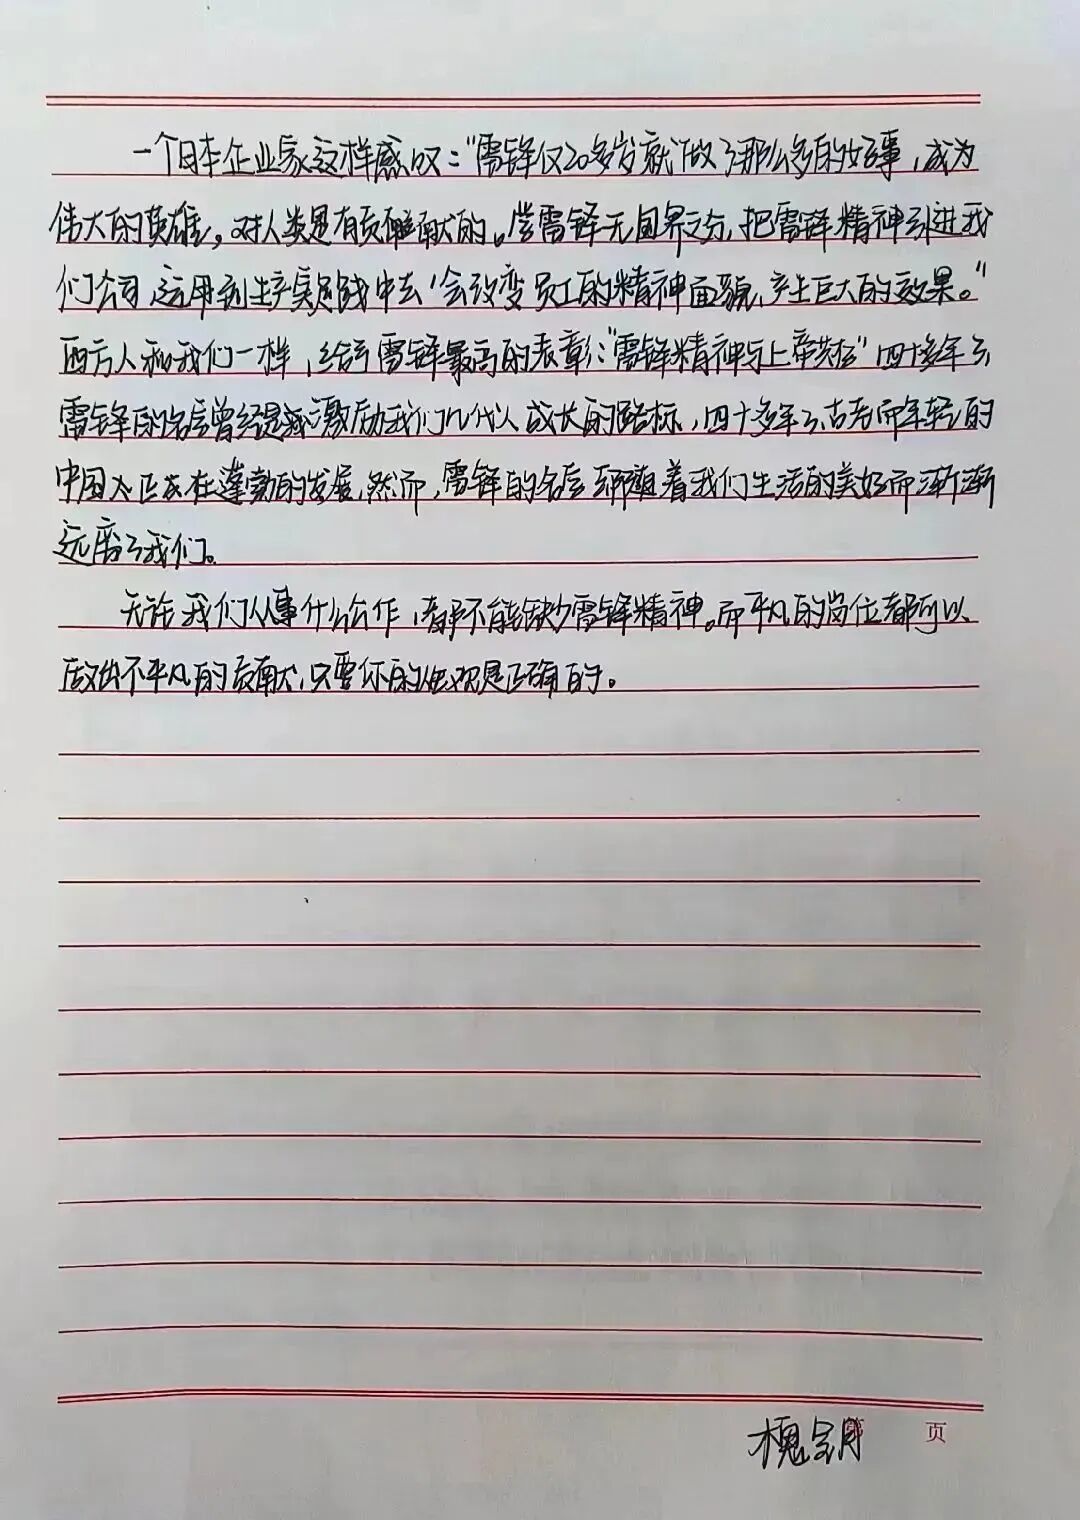 一个日本企业家这样感叹："雷锋仅20多岁就做了那么多的好事，成为
伟大的英雄，对人类是有贡献的。学雷锋无国界之分，把雷锋精神引进我
们公司，运用到生产实践中去，会改变员工的精神面貌，产生巨大的效果。"
西方人和我们一样，给予雷锋最高的表彰："雷锋精神与上帝共在"四十多年了
雷锋的名字曾经是激励我们几代人成长的路标，四十多年了，古老而年轻的
中国人正在蓬勃的发展，然而，雷锋的名字却随着我们生活的美好而渐渐
远离了我们。
无论我们从事什么工作，都不能缺少雷锋精神。而平凡的岗位都可以
做出不平凡的贡献，只要你的观是正确的。
第 页